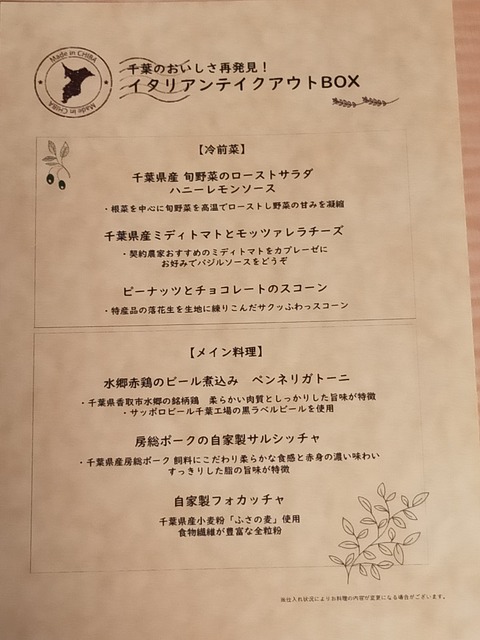 Made in CHIBA
Made in CHIBA
千葉のおいしさ再発見！
イタリアンテイクアウトBOX
【冷前菜】
千葉県産 旬野菜のローストサラダ
ハニーレモンソース
・根菜を中心に旬野菜を高温でローストし野菜の甘みを凝縮
千葉県産ミディトマトとモッツァレラチーズ
・契約農家おすすめのミディトマトをカプレーゼに
お好みでバジルソースをどうぞ
ピーナッツとチョコレートのスコーン
・特産品の落花生を生地に練りこんだサクッふわっスコーン
【メイン料理】
水郷赤鶏のビール煮込み ペンネリガトーニ
・千葉県香取市水郷の銘柄鶏 柔らかい肉質としっかりした旨味が特徴
・サッポロビール千葉工場の黒ラベルビールを使用
房総ポークの自家製サルシッチャ
・千葉県産房総ポーク 飼料にこだわり柔らかな食感と赤身の濃い味わい
すっきりした脂の旨味が特徴
自家製フォカッチャ
千葉県産小麦粉「ふさの麦」使用
食物繊維が豊富な全粒粉
※仕入れ状況によりお料理の内容が変更になる場合がございます。